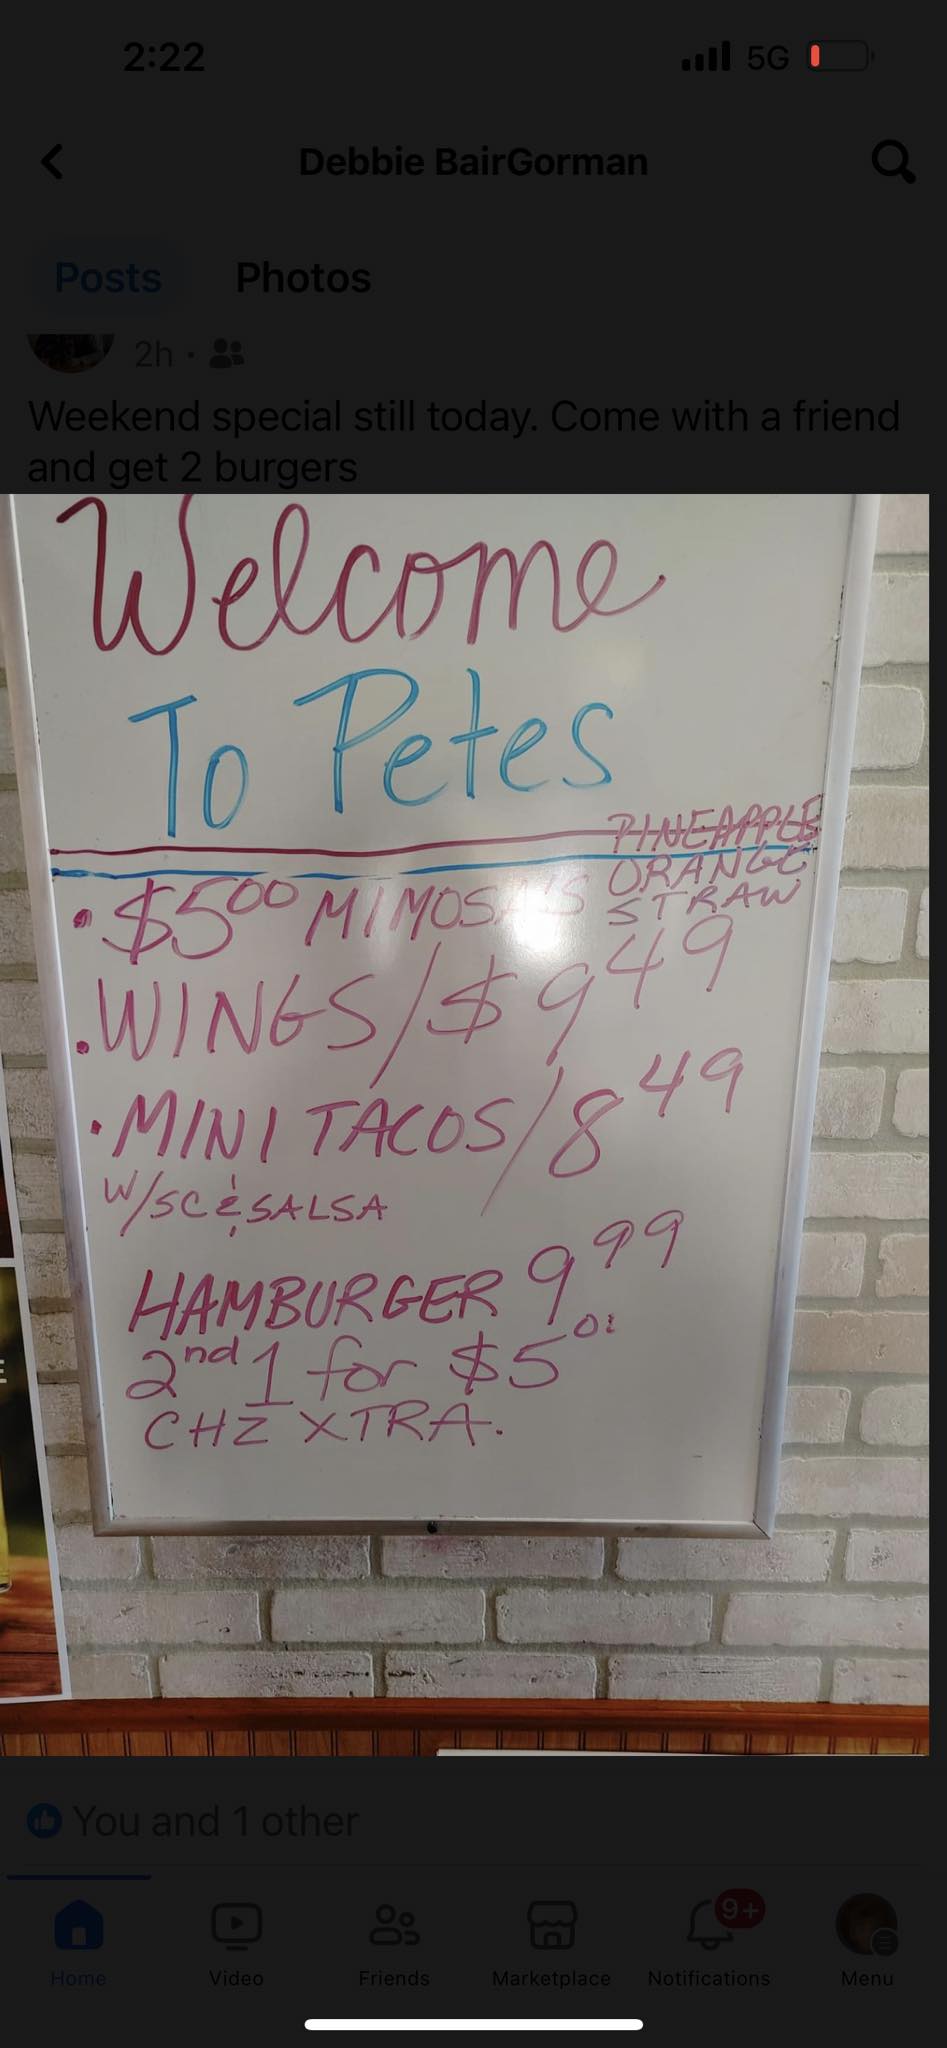 2:22
5G
Debbie BairGorman
Posts Photos
2h
Weekend special still today. Come with a friend
and get 2 burgers
Welcome
To Petes
PINEAPPLE
ORANGE
STRAW
• $5⁰⁰ MIMOSA'S
• WINGS/$9⁴⁹
• MINI TACOS/8⁴⁹
W/SC & SALSA
HAMBURGER 9⁹⁹
2nd 1 for $5
CHZ XTRA.
You and 1 other
9+
Home Video Friends Marketplace Notifications Menu